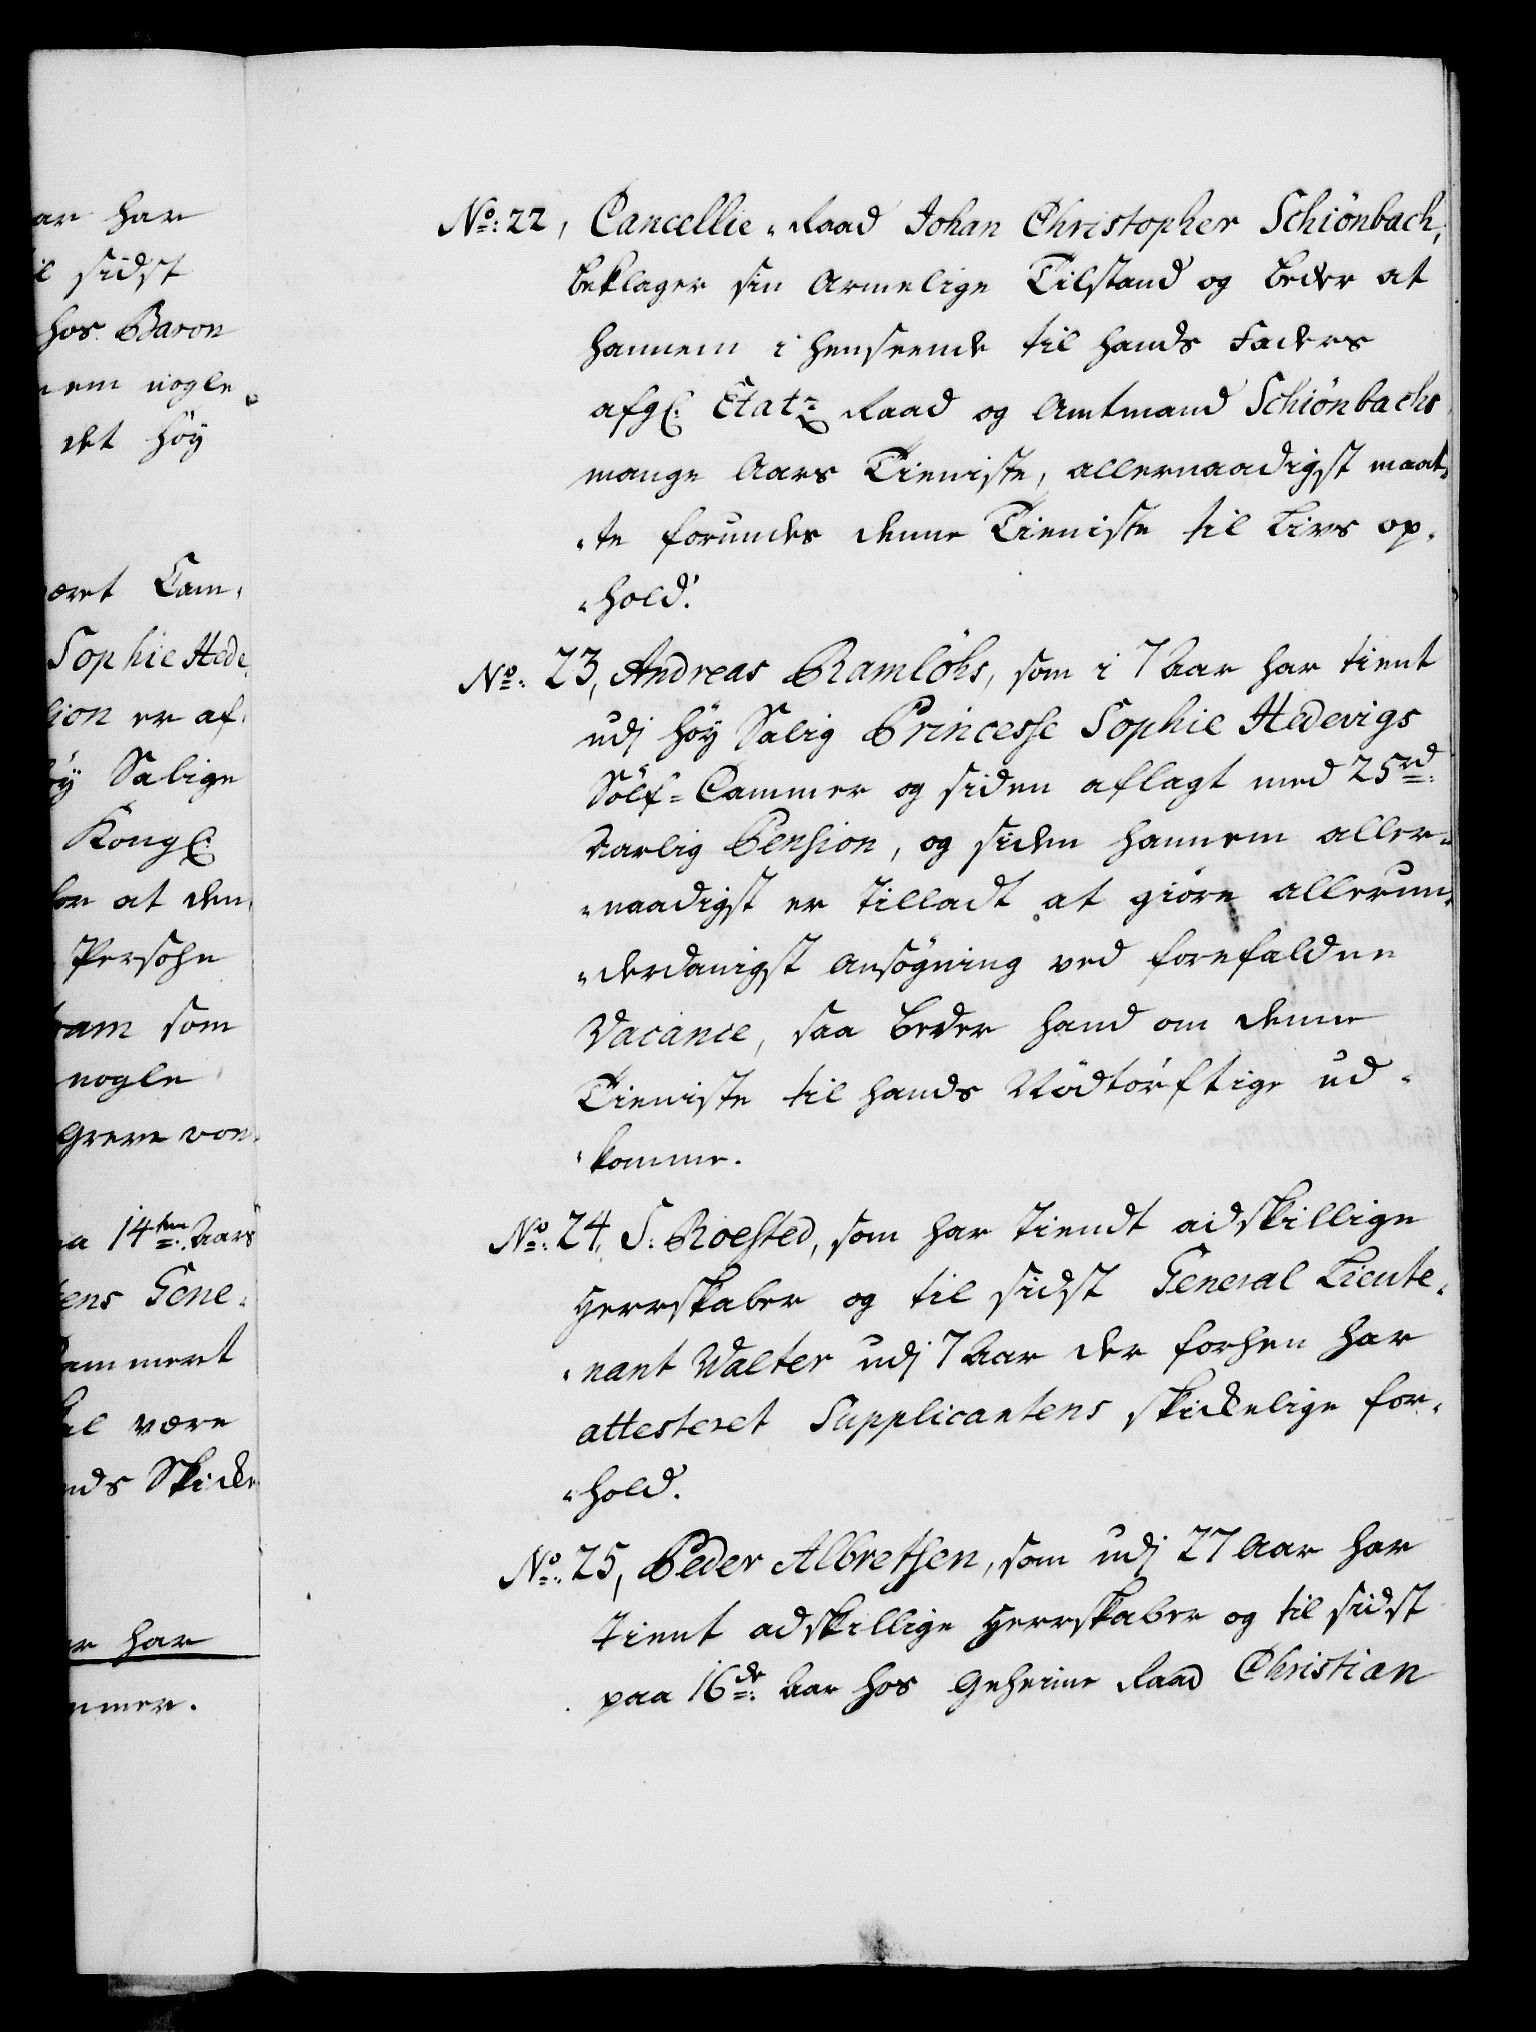 ar har
il sidst
hos Baron
nem nogle
det høy
æret Cam-
Sophie Hede
sion er af-
øy Salige
Kongl:
for at den
Persohn
ram som
nogle
Greve von
aa 14ten: Aars
tens Gene-
Cammeret
al være
nds Skikke
er har
mmer.
No: 22, Cancellie-Raad Johan Christopher Schiönbach,
beklager sin Armelige Tilstand og beder at
hannem i henseende til hands Faders
afgl: Etatz Raad og Amtmand Schiönbachs
mange Aars Tieniste, allernaadigst maat-
-te forundes denne Tieniste til Livs op-
-hold.
No: 23, Andreas Ramlöhs, som i 7 Aar har tient
udj høy Salig Princesse Sophie Hedevigs
Sölf-Cammer og siden aflagt med 25 rd:
Aarlig Pension, og siden hannem aller-
-naadigst er tilladt at giöre allerun-
-derdanigst Ansögning ved forefaldne
Vacance, saa beder hand om denne
Tieniste til hands Nödtörftige ud-
-komme.
No: 24, S: Roested, som har tiendt adskillige
Herskaber og til sidst General Lieute-
-nant Walter udj 7 Aar der forhen har
attesteret Supplicantens skikkelige for-
-hold.
No: 25, Peder Albretsen, som udj 27 Aar har
tient adskillige Herskaber og til sidst
paa 16de: Aar hos Geheime Raad Christian